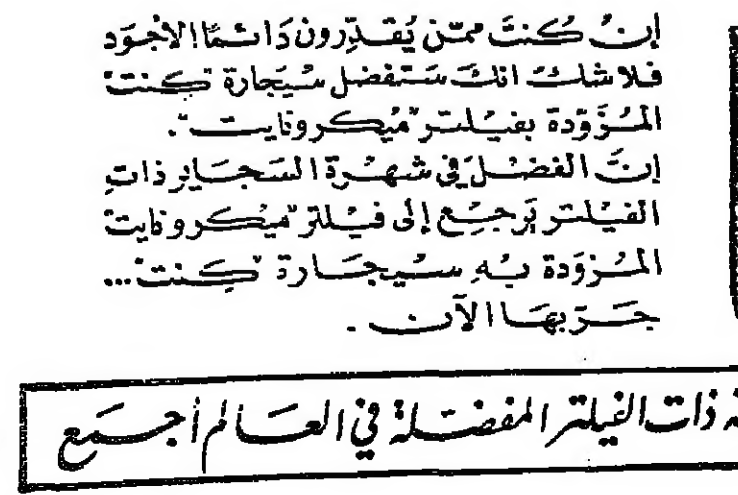 إن كنت ممّن يُقدِّرون دَائمًا الأجوَد
فلا شك انك سَتفضل سُيَجارة "كِنت"
المُزَوّدة بفيْلتر "مُيكرونايت".
إنّ الفضْل في شهْرة السَجَاير ذات
الفيْلتر يَرجِع إلى فيْلتر "ميْكرونايت"
المُزوَدة بهِ سيجَارة "كِنت"...
جَرّبهَا الآن .
ذات الفيلتر المفضّلة في العَالم أجمَع